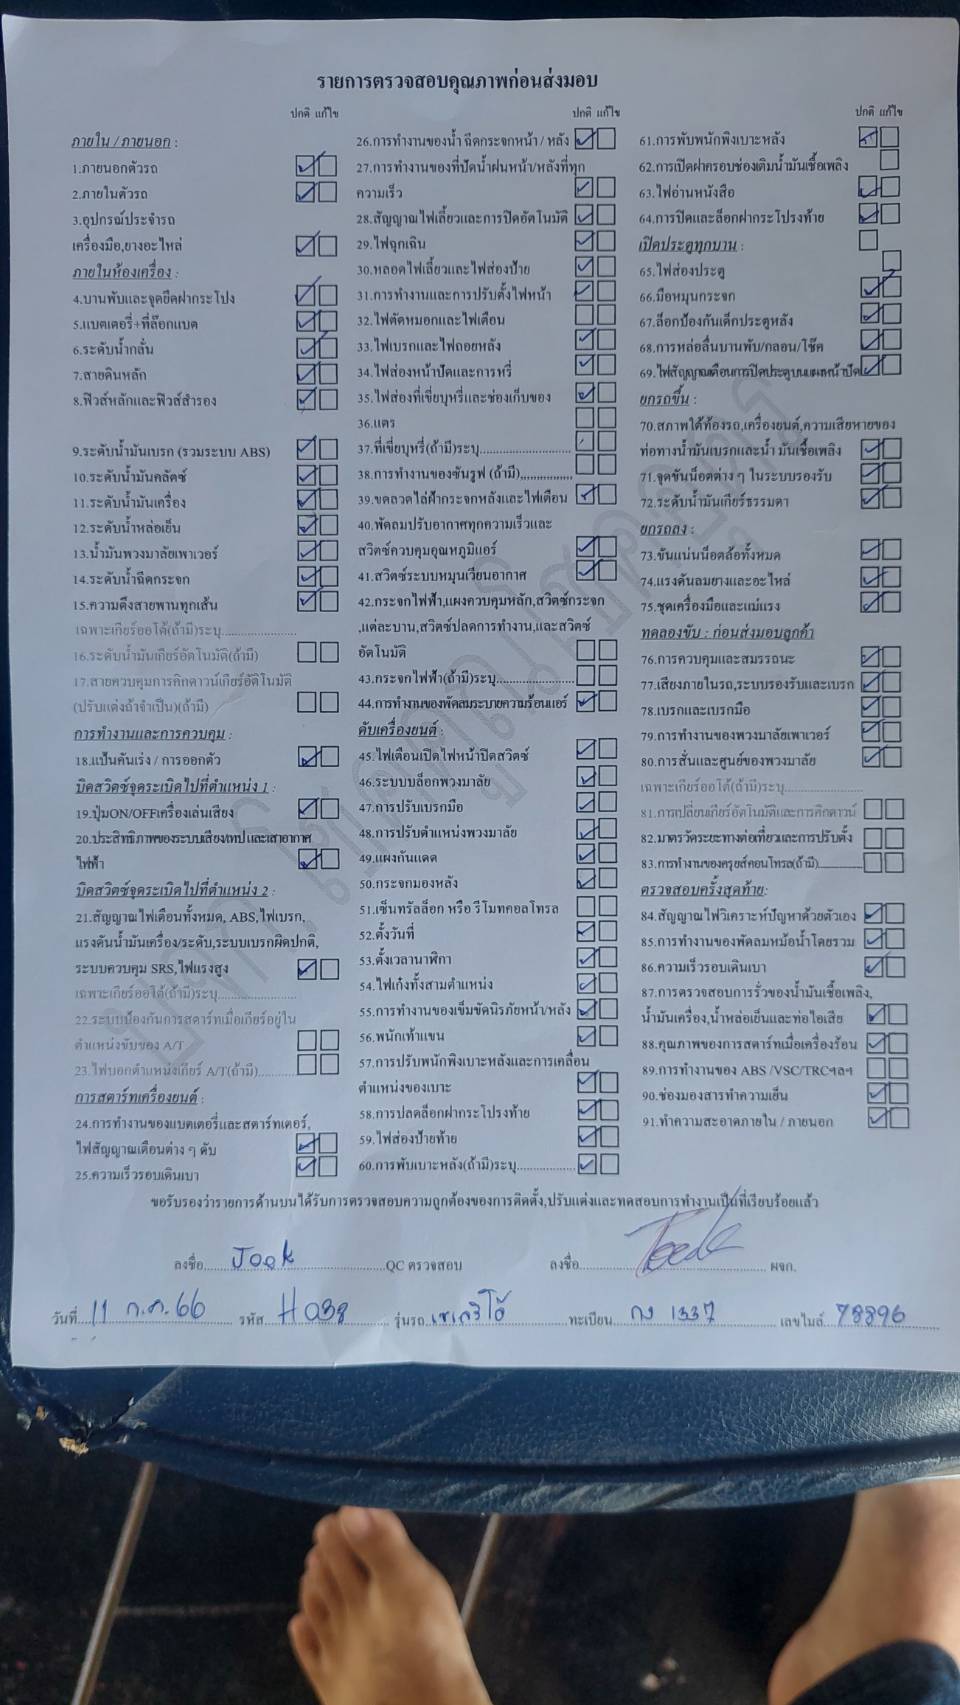 รายการตรวจสอบคุณภาพก่อนส่งมอบ
ปกติ แก้ไข
ภายใน / ภายนอก :
1.ภายนอกตัวรถ
2.ภายในตัวรถ
3.อุปกรณ์ประจำรถ
เครื่องมือ,ยางอะไหล่
ภายในห้องเครื่อง :
4.บานพับและจุดยึดฝากระโปง
5.แบตเตอรี่+ที่ล๊อกแบต
6.ระดับน้ำกลั่น
7.สายดินหลัก
8.ฟิวส์หลักและฟิวส์สำรอง
9.ระดับน้ำมันเบรก (รวมระบบ ABS)
10.ระดับน้ำมันคลัตช์
11.ระดับน้ำมันเครื่อง
12.ระดับน้ำหล่อเย็น
13.น้ำมันพวงมาลัยเพาเวอร์
14.ระดับน้ำฉีดกระจก
15.ความตึงสายพานทุกเส้น
เฉพาะเกียร์ออโต้(ถ้ามี)ระบุ.....................
16.ระดับน้ำมันเกียร์อัตโนมัติ(ถ้ามี)
17.สายควบคุมการคิกดาวน์เกียร์อัติโนมัติ
(ปรับแต่งถ้าจำเป็น)(ถ้ามี)
การทำงานและการควบคุม :
18.แป้นคันเร่ง / การออกตัว
บิดสวิตซ์จุดระเบิดไปที่ตำแหน่ง 1 :
19.ปุ่มON/OFFเครื่องเล่นเสียง
20.ประสิทธิภาพของระบบเสียงเทป และเสาอากาศ
ไฟฟ้า
บิดสวิตซ์จุดระเบิดไปที่ตำแหน่ง 2 :
21.สัญญาณไฟเตือนทั้งหมด, ABS,ไฟเบรก,
แรงดันน้ำมันเครื่อง/ระดับ,ระบบเบรกผิดปกติ,
ระบบควบคุม SRS,ไฟแรงสูง
เฉพาะเกียร์ออโต้(ถ้ามี)ระบุ.....................
22.ระบบป้องกันการสตาร์ทเมื่อเกียร์อยู่ใน
ตำแหน่งขับของ A/T
23.ไฟบอกตำแหน่งเกียร์ A/T(ถ้ามี)..............
การสตาร์ทเครื่องยนต์ :
24.การทำงานของแบตเตอรี่และสตาร์ทเตอร์,
ไฟสัญญาณเตือนต่าง ๆ ดับ
25.ความเร็วรอบเดินเบา
ปกติ แก้ไข
26.การทำงานของน้ำ ฉีดกระจกหน้า / หลัง
27.การทำงานของที่ปัดน้ำฝนหน้า/หลังที่ทุก
ความเร็ว
28.สัญญาณไฟเลี้ยวและการปิดอัตโนมัติ
29.ไฟฉุกเฉิน
30.หลอดไฟเลี้ยวและไฟส่องป้าย
31.การทำงานและการปรับตั้งไฟหน้า
32.ไฟตัดหมอกและไฟเตือน
33.ไฟเบรกและไฟถอยหลัง
34.ไฟส่องหน้าปัดและการหรี่
35.ไฟส่องที่เขี่ยบุหรี่และช่องเก็บของ
36.แตร
37.ที่เขี่ยบุหรี่(ถ้ามี)ระบุ.....................
38.การทำงานของซันรูฟ (ถ้ามี)................
39.ขดลวดไล่ฝ้ากระจกหลังและไฟเตือน
40.พัดลมปรับอากาศทุกความเร็วและ
สวิตช์ควบคุมอุณหภูมิแอร์
41.สวิตซ์ระบบหมุนเวียนอากาศ
42.กระจกไฟฟ้า,แผงควบคุมหลัก,สวิตช์กระจก
,แต่ละบาน,สวิตช์ปลดการทำงาน,และสวิตช์
อัตโนมัติ
43.กระจกไฟฟ้า(ถ้ามี)ระบุ.....................
44.การทำงานของพัดลมระบายความร้อนแอร์
ดับเครื่องยนต์ :
45.ไฟเตือนเปิดไฟหน้าปิดสวิตช์
46.ระบบบล็อกพวงมาลัย
47.การปรับเบรกมือ
48.การปรับตำแหน่งพวงมาลัย
49.แผงกันแดด
50.กระจกมองหลัง
51.เซ็นทรัลล็อก หรือ รีโมทคอลโทรล
52.ตั้งวันที่
53.ตั้งเวลานาฬิกา
54.ไฟเก๋งทั้งสามตำแหน่ง
55.การทำงานของเข็มขัดนิรภัยหน้า/หลัง
56.พนักเท้าแขน
57.การปรับพนักพิงเบาะหลังและการเคลื่อน
ตำแหน่งของเบาะ
58.การปลดล็อกฝากระโปรงท้าย
59.ไฟส่องป้ายท้าย
60.การพับเบาะหลัง(ถ้ามี)ระบุ................
ปกติ แก้ไข
61.การพับพนักพิงเบาะหลัง
62.การเปิดฝาครอบช่องเติมน้ำมันเชื้อเพลิง
63.ไฟอ่านหนังสือ
64.การปิดและล็อกฝากระโปรงท้าย
เปิดประตูทุกบาน :
65.ไฟส่องประตู
66.มือหมุนกระจก
67.ล็อกป้องกันเด็กประตูหลัง
68.การหล่อลื่นบานพับ/กลอน/โช๊ค
69.ไฟสัญญาณเตือนการปิดประตูบนแผลหน้าปัด
ยกรถขึ้น :
70.สภาพใต้ท้องรถ,เครื่องยนต์,ความเสียหายของ
ท่อทางน้ำมันเบรกและน้ำ มันเชื้อเพลิง
71.จุดขันน็อตต่าง ๆ ในระบบรองรับ
72.ระดับน้ำมันเกียร์ธรรมดา
ยกรถลง :
73.ขันแน่นน็อตล้อทั้งหมด
74.แรงดันลมยางและอะไหล่
75.ชุดเครื่องมือและแม่แรง
ทดลองขับ : ก่อนส่งมอบลูกค้า
76.การควบคุมและสมรรถนะ
77.เสียงภายในรถ,ระบบรองรับและเบรก
78.เบรกและเบรกมือ
79.การทำงานของพวงมาลัยเพาเวอร์
80.การสั่นและศูนย์ของพวงมาลัย
เฉพาะเกียร์ออโต้(ถ้ามี)ระบุ.....................
81.การเปลี่ยนเกียร์อัตโนมัติและการคิกดาวน์
82.มาตรวัดระยะทางต่อเที่ยวและการปรับตั้ง
83.การทำงานของครุยส์คอนโทรล(ถ้ามี)..............
ตรวจสอบครั้งสุดท้าย:
84.สัญญาณไฟวิเคราะห์ปัญหาด้วยตัวเอง
85.การทำงานของพัดลมหม้อน้ำโดยรวม
86.ความเร็วรอบเดินเบา
87.การตรวจสอบการรั่วของน้ำมันเชื้อเพลิง,
น้ำมันเครื่อง,น้ำหล่อเย็นและท่อไอเสีย
88.คุณภาพของการสตาร์ทเมื่อเครื่องร้อน
89.การทำงานของ ABS /VSC/TRCฯลฯ
90.ช่องมองสารทำความเย็น
91.ทำความสะอาดภายใน / ภายนอก
ขอรับรองว่ารายการด้านบนได้รับการตรวจสอบความถูกต้องของการติดตั้ง,ปรับแต่งและทดสอบการทำงานเป็นที่เรียบร้อยแล้ว
ลงชื่อ Jook QC ตรวจสอบ ลงชื่อ ผจก.
วันที่ 11 ก.ค. 66 รหัส H 038 รุ่นรถ เซเลริโอ้ ทะเบียน กง 1337 เลขไมล์ 78896